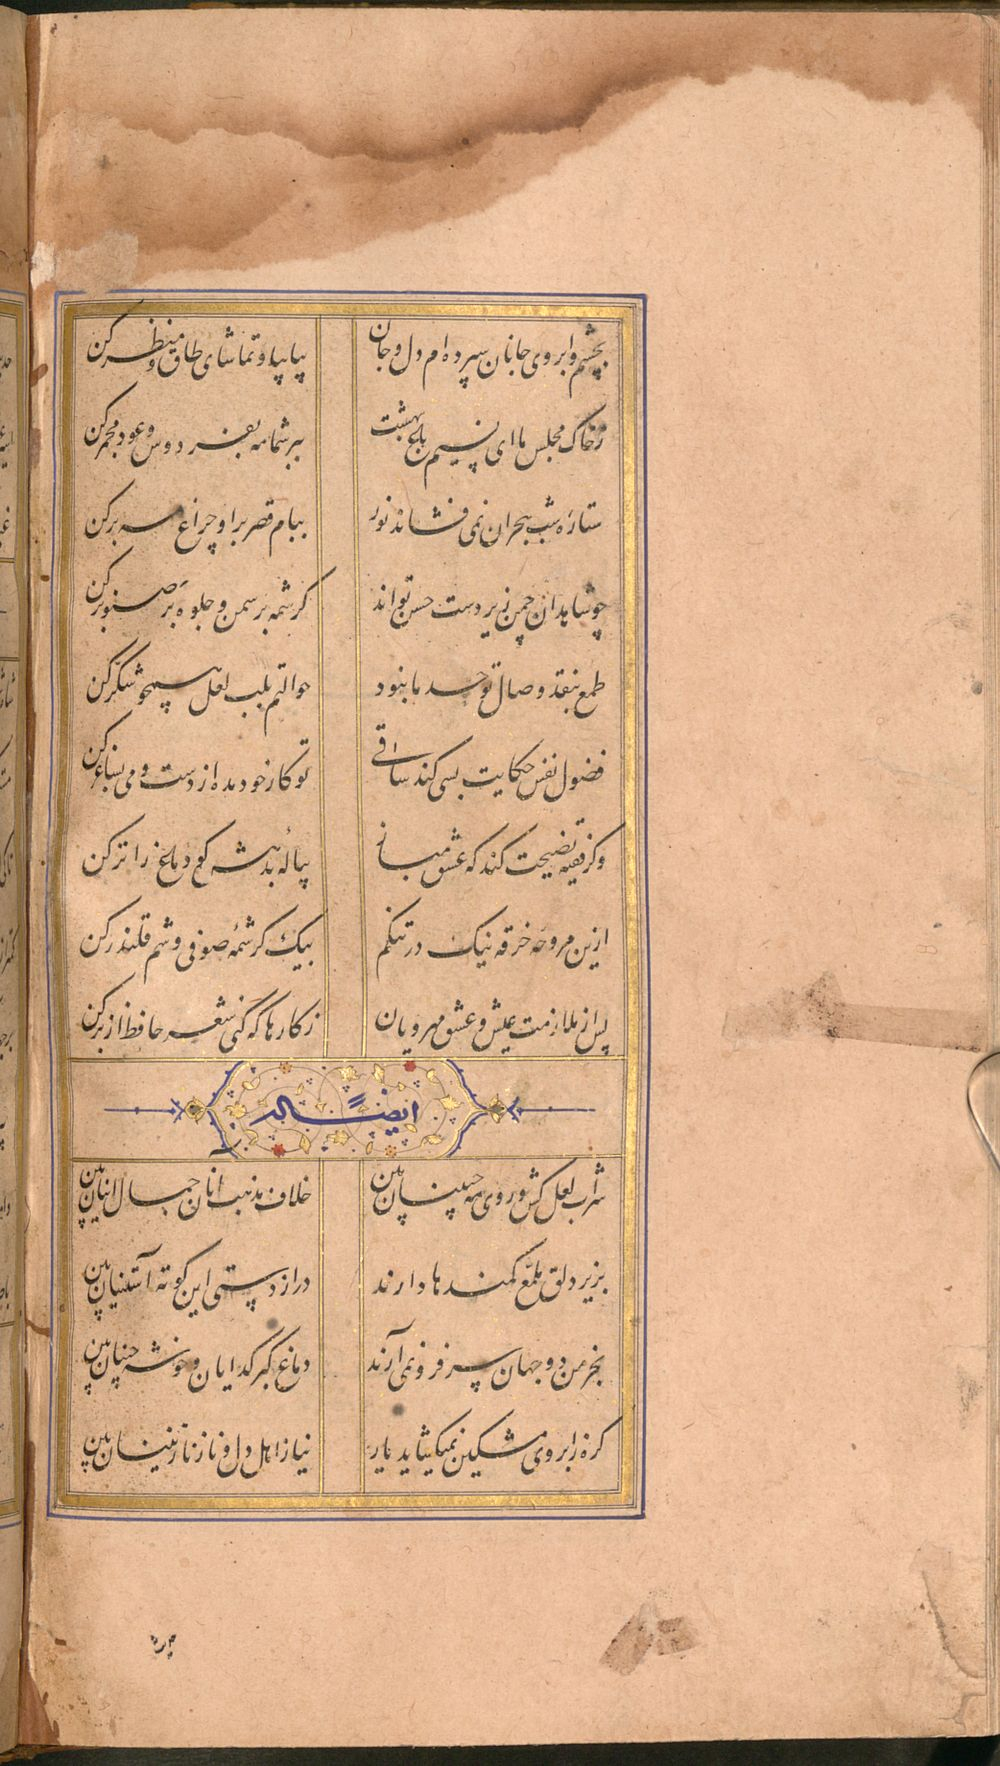 بچشم و ابروی جانان سپرده ام دل و جان
بیا بیا و تماشای طاق و منظر کن
ز خاک مجلس ما ای نسیم باغ بهشت
ببر شمامه بفردوس و عود مجمر کن
ستاره شب هجران نمی فشاند نور
ببام قصر برا و چراغ مه بر کن
چو شاهدان چمن زیر دست حسن تو اند
کرشمه بر سمن و جلوه بر صنوبر کن
طمع بنقد وصال تو حد ما نبود
حوالتم بلب لعل همچو شکر کن
فضول نفس حکایت بسی کند ساقی
تو کار خود مده از دست و می بساغر کن
وگر فقیه نصیحت کند که عشق مباز
پیاله بدهش گو دماغ را تر کن
ازین مروحه خرقه نیک در تنگم
بیک کرشمه صوفی وشم قلندر کن
پس از ملازمت عیش و عشق مهرویان
ز کارها که کنی شعر حافظ از بر کن
ایضاً له
شراب لعل کش و روی مه جبینان بین
خلاف مذهب آنان جمال اینان بین
بزیر دلق ملمع کمندها دارند
دراز دستی این کوته آستینان بین
بخرمن دو جهان سر فرو نمی آرند
دماغ کبر گدایان و خوشه چینان بین
گره ز ابروی مشکین نمیگشاید یار
نیاز اهل دل و ناز نازنینان بین